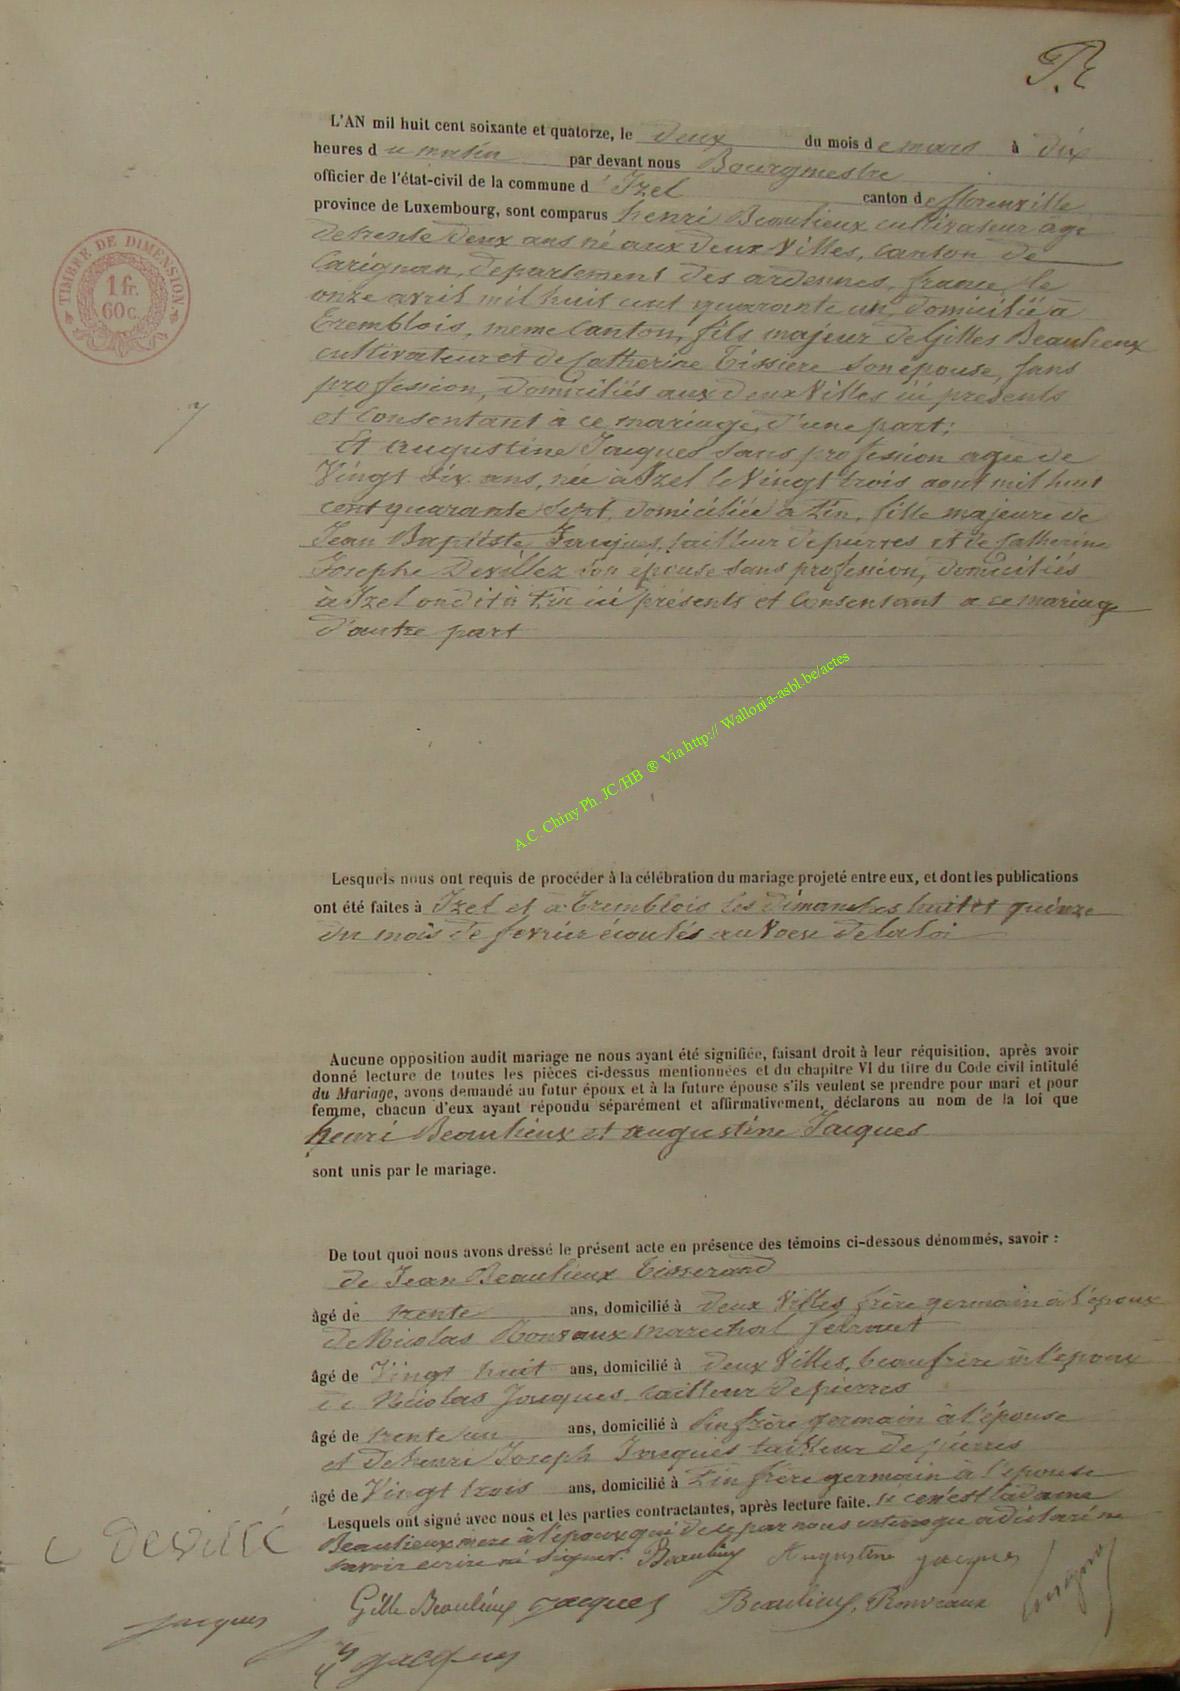 L'AN mil huit cent soixante et quatorze, le deux du mois de mars à dix
heures du matin par devant nous Bourgmestre
officier de l'état-civil de la commune d'Izel canton de florenville
province de Luxembourg, sont comparus henri Beaulieux cultivateur âgé
de trente deux ans né aux deux Villes, canton de
Carignan, departement des ardennes, france, le
onze avril mil huit cent quarante un, domicilié à
Tremblois, meme Canton, fils majeur de Gilles Beaulieux
cultivateur et de Catherine Tissiere son épouse, sans
profession, domiciliés aux deux Villes ici présents
et Consentant à ce mariage, d'une part;
Et augustine Jacques sans profession agée de
Vingt six ans, née à Izel le Vingt trois aout mil huit
cent quarante sept, domiciliée à tin, fille majeure de
Jean Baptiste Jacques, tailleur de pierres et de Catherine
Josephe Devillez son épouse sans profession, domiciliés
à Izel ondit à tin ici présents et Consentant a ce mariage
d'autre part
Lesquels nous ont requis de procéder à la célébration du mariage projeté entre eux, et dont les publications
ont été faites à Izel et à Tremblois les dimanches huit et quinze
du mois de fevrier écoulés au Voeu de la loi
Aucune opposition audit mariage ne nous ayant été signifiée, faisant droit à leur réquisition, après avoir
donné lecture de toutes les pièces ci-dessus mentionnées et du chapitre VI du titre du Code civil intitulé
du Mariage, avons demandé au futur époux et à la future épouse s'ils veulent se prendre pour mari et pour
femme, chacun d'eux ayant répondu séparément et affirmativement, déclarons au nom de la loi que
henri Beaulieux et augustine Jacques
sont unis par le mariage.
De tout quoi nous avons dressé le présent acte en présence des témoins ci-dessous dénommés, savoir :
de Jean Beaulieux Tisserand
âgé de trente ans, domicilié à deux Villes frère germain à l'époux
de Nicolas Ronvaux marechal ferrant
âgé de Vingt huit ans, domicilié à deux Villes, beaufrère à l'époux
de Nicolas Jacques tailleur de pierres
âgé de trente un ans, domicilié à tin frère germain à l'épouse
et de henri Joseph Jacques tailleur de pierres
âgé de Vingt trois ans, domicilié à tin frère germain à l'épouse
Lesquels ont signé avec nous et les parties contractantes, après lecture faite. si ce n'est la dame
Beaulieux mere à l'époux qui de ce par nous interrogée a déclaré ne
savoir écrire ni signer. Beaulieux Augustine jacques
C Devillé
Gille Beaulieux jacques Beaulieux, Ronvaux
jacques
jacques
TIMBRE DE DIMENSION
1 fr.
60 c.
A.C. Chiny Ph. JC/HB ® Via http:// Wallonia-asbl.be/actes